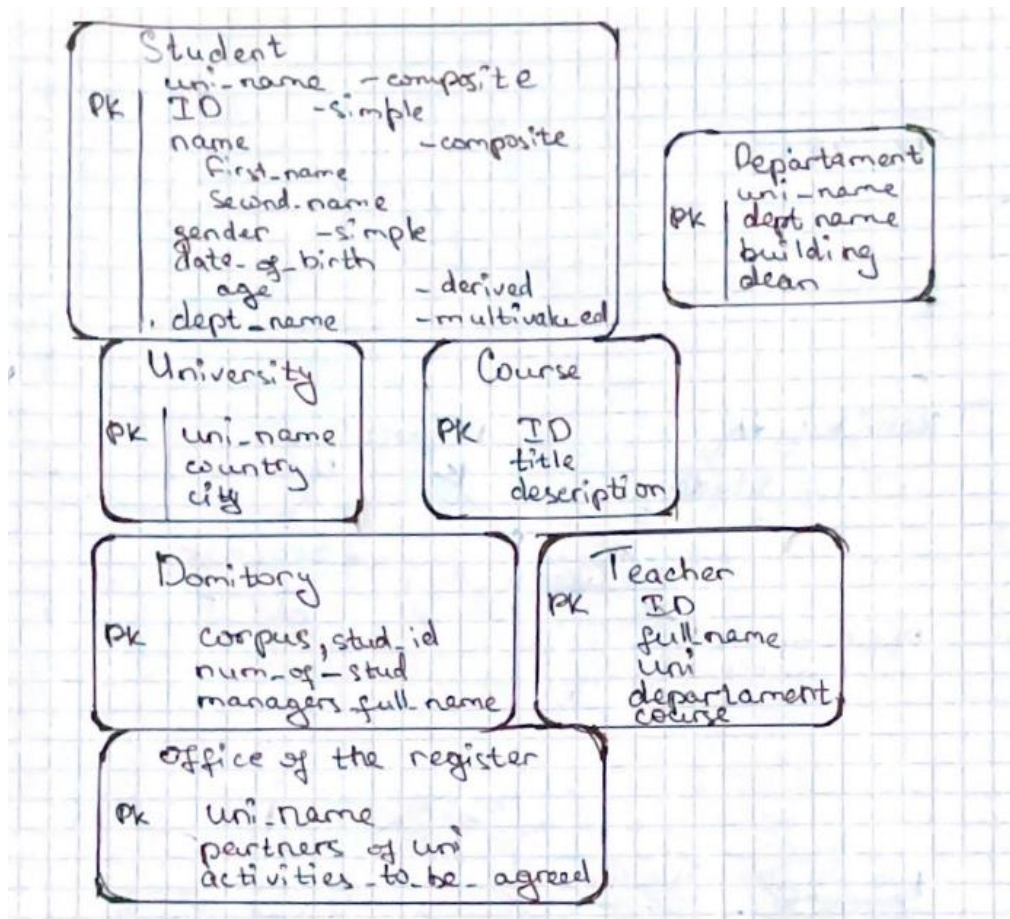 Student
uni-name - composite
PK ID - simple
name - composite
First-name
Second-name
gender - simple
date-of-birth
age - derived
dept-name - multivalued
Departament
uni-name
PK dept name
building
dean
University
PK uni-name
country
city
Course
PK ID
title
description
Domitory
PK corpus, stud-id
num-of-stud
managers-full-name
Teacher
PK ID
full-name
uni
departament
course
Office of the register
PK uni-name
partners of uni
activities-to-be-agreed